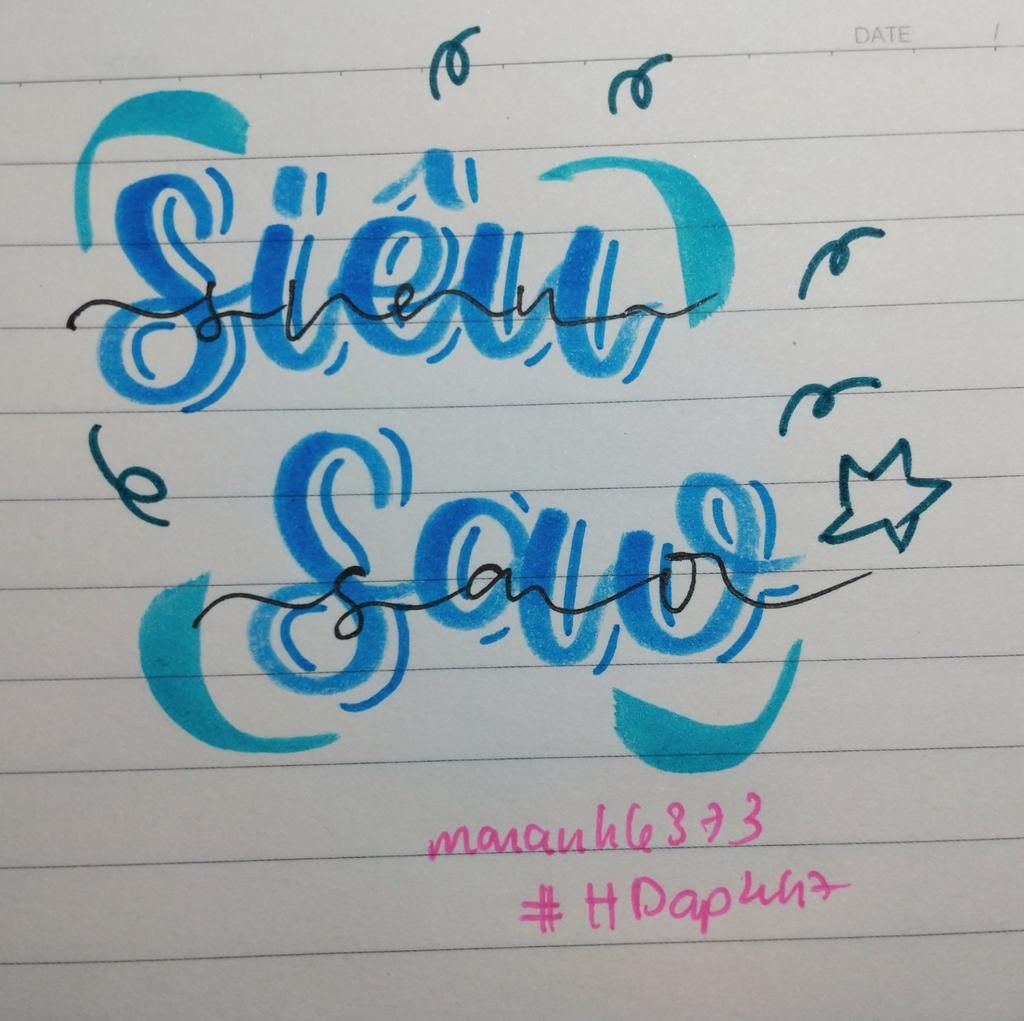 DATE /
Siêu
sieu
Sao
sao
maianh6373
#HDap247